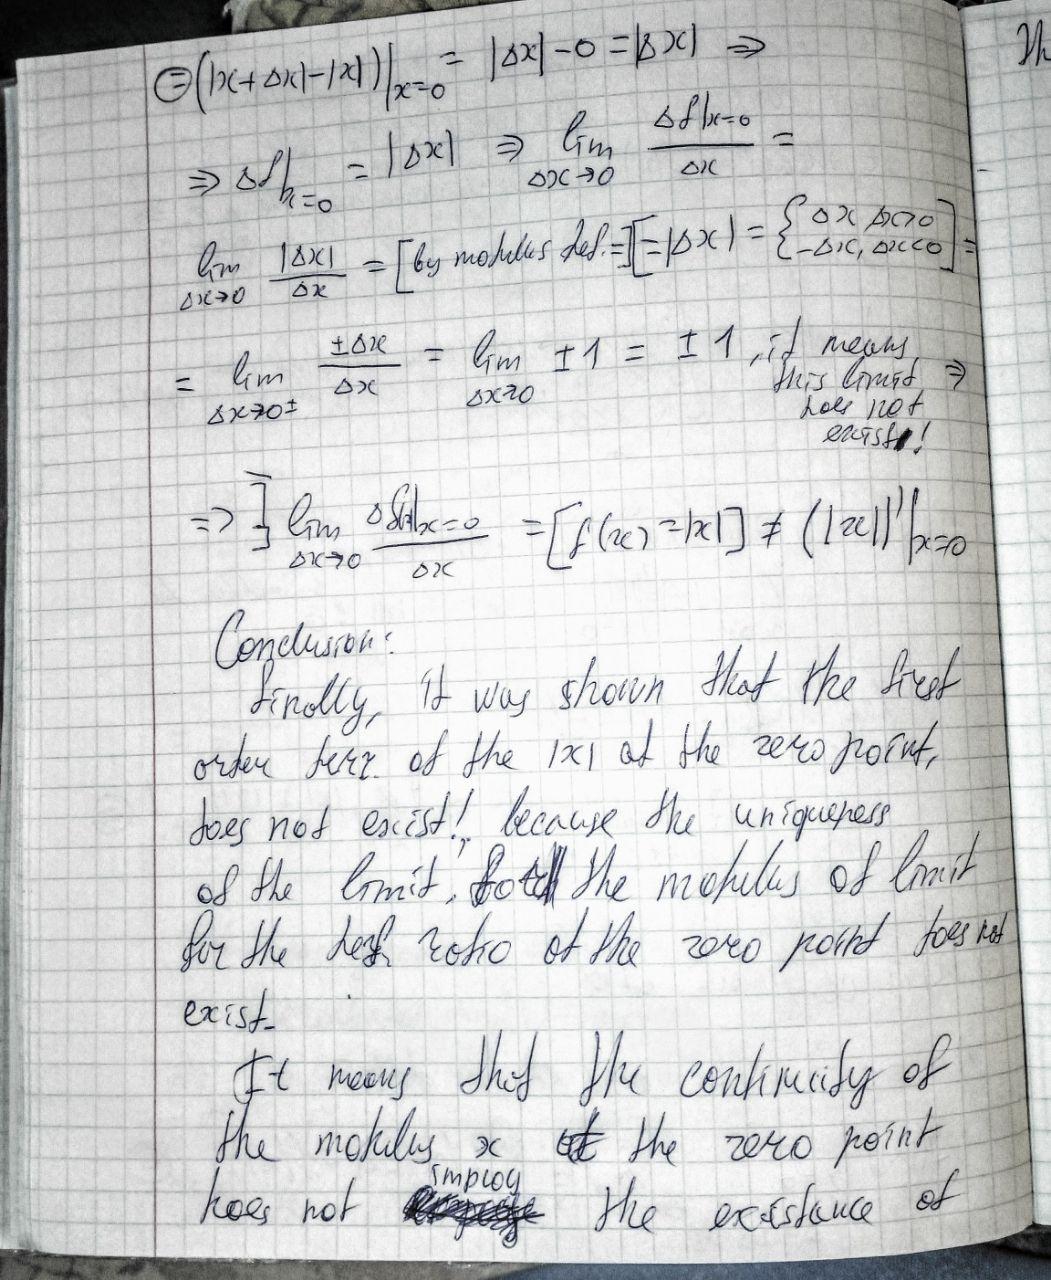 ⊜(|x+Δx|-|x|)|x=0 = |Δx| - 0 = |Δx| ⇒
⇒ Δf|x=0 = |Δx| ⇒ lim Δx→0 Δf|x=0 / Δx =
lim Δx→0 |Δx| / Δx = [by modulus def.=][=|Δx| = {Δx, Δx>0 -Δx, Δx<0] =
= lim Δx→0± ±Δx / Δx = lim Δx→0 ±1 = ±1, it means
this limit ⇒
does not
exist!
=> ∃ lim Δx→0 Δf|x=0 / Δx = [f(x) = |x|] ≠ (|x|)'|x=0
Conclusion:
finally, it was shown that the first
order of the |x| at the zero point,
does not exist! because the uniqueness
of the limit, the modulus of limit
for the ratio at the zero point does not
exist.
It means that the continuity of
the modulus x at the zero point
does not imploy the existance of
Th